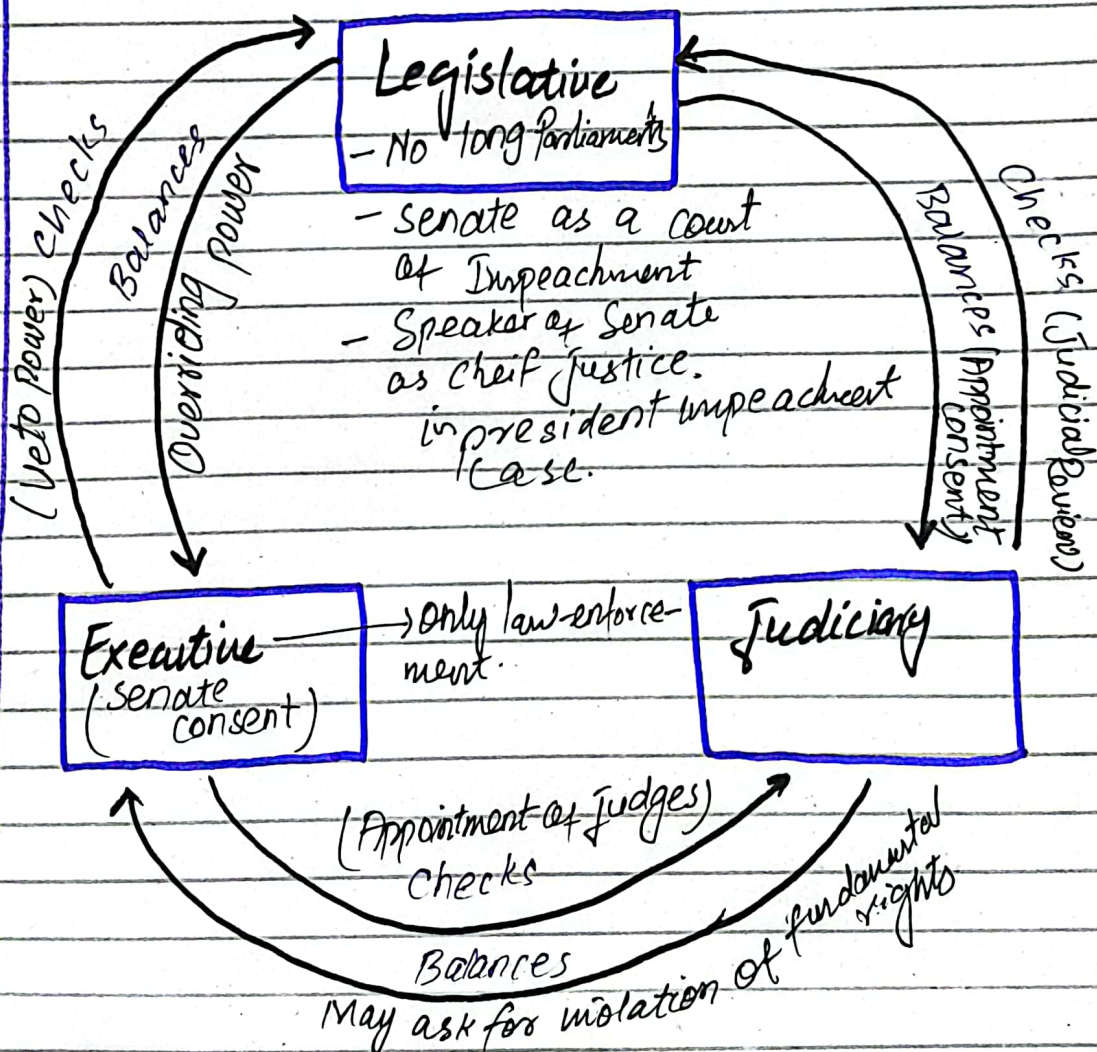 Legislative
- No long Parliaments
- Senate as a court
of Impeachment
- Speaker of Senate
as Cheif Justice.
in president impeachment
Case.
(Veto power) Checks
Balances
Overriding power
Checks (Judicial Review)
Balances (Appointment
consent)
Executive
(Senate
consent)
Only law-enforce-
ment.
Judiciary
(Appointment of Judges)
Checks
Balances
May ask for violation of fundamental
rights